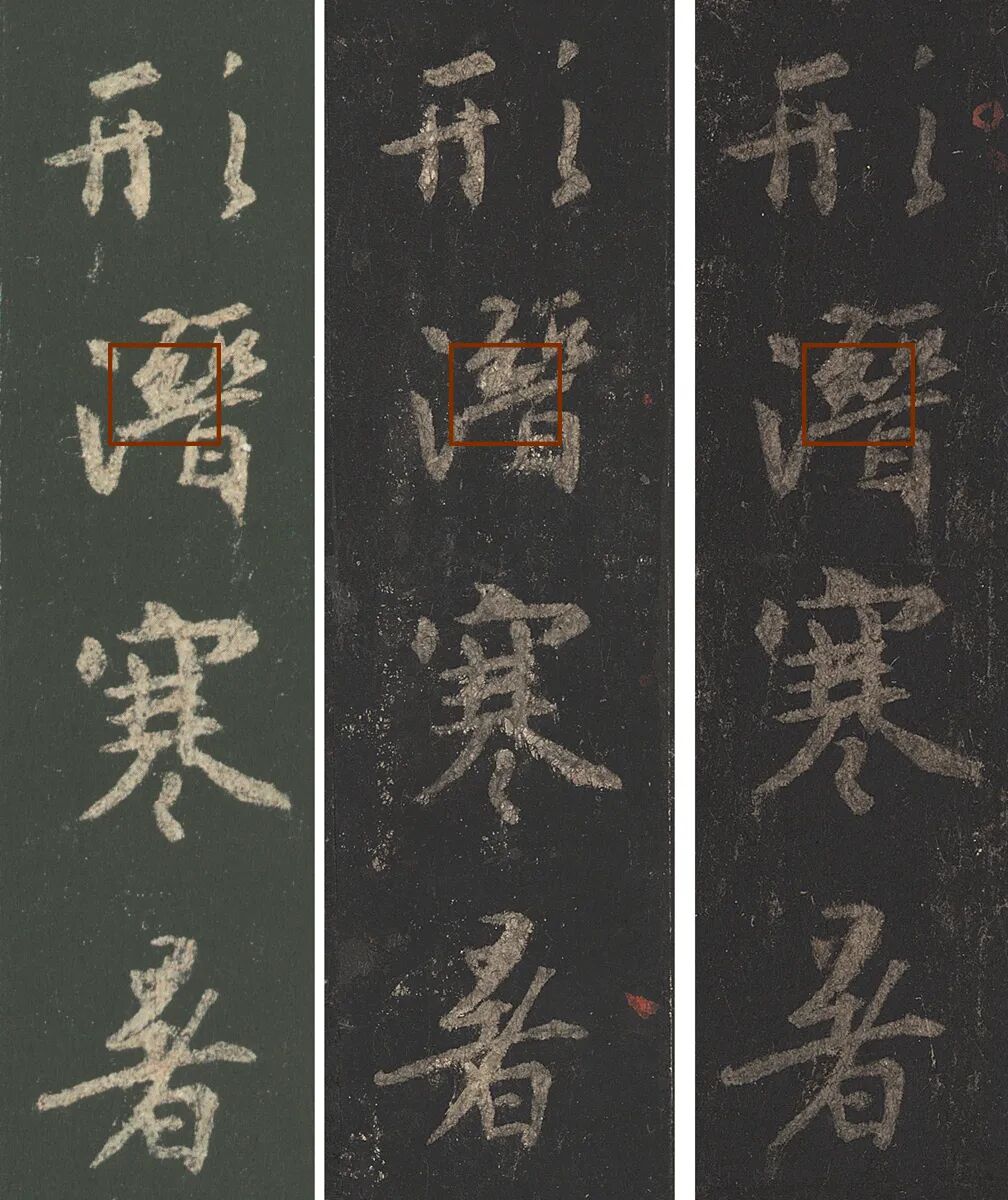 形潛寒暑
形潛寒暑
形潛寒暑